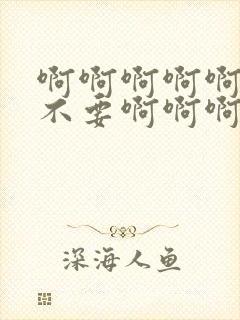 啊啊啊啊啊
不要啊啊啊
深海人鱼